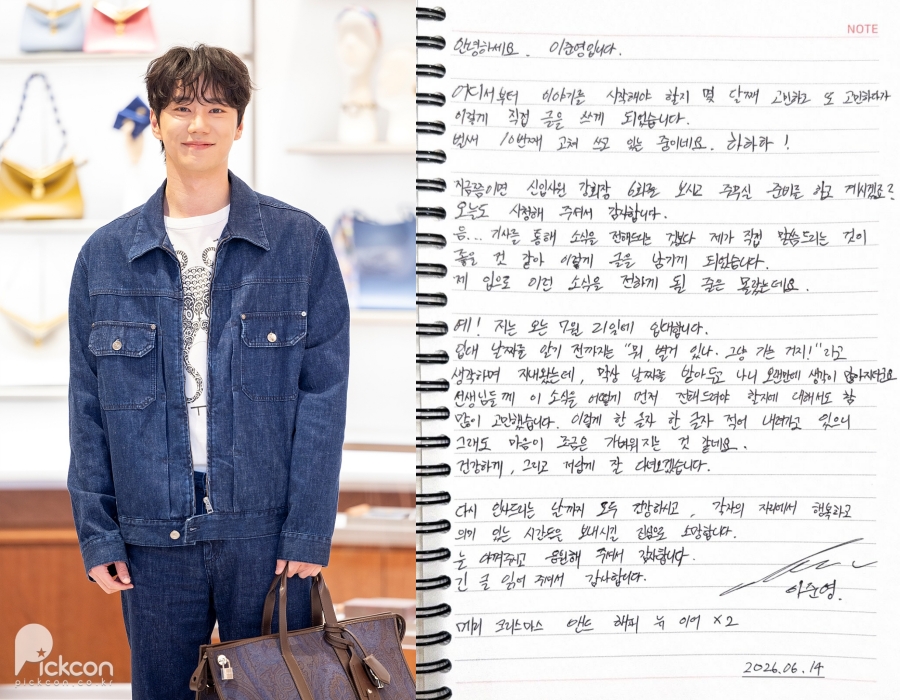 NOTE
안녕하세요. 이준영입니다.
어디서부터 이야기를 시작해야 할지 몇 달째 고민하고 또 고민하다가
이렇게 직접 글을 쓰게 되었습니다.
벌써 10번째 고쳐 쓰고 있는 중이네요. 하하하!
지금쯤이면 신입사원 강회장 6회를 보시고 주무실 준비를 하고 계시겠죠?
오늘도 시청해 주셔서 감사합니다.
음... 기사를 통해 소식을 전해드리는 것보다 제가 직접 말씀드리는 것이
좋을 것 같아 이렇게 글을 남기게 되었습니다.
제 입으로 이런 소식을 전하게 될 줄은 몰랐는데요.
예! 저는 오는 7월 21일에 입대합니다.
입대 날짜를 알기 전까지는 "뭐 별거 있나. 그냥 가는 거지!"라고
생각하며 지내왔는데, 막상 날짜를 받아두고 나니 오랜만에 생각이 많아지더군요
선생님들께 이 소식을 어떻게 먼저 전해드려야 할지에 대해서도 참
많이 고민했습니다. 이렇게 한 글자 한 글자 적어 내려가고 있으니
그래도 마음이 조금은 가벼워지는 것 같네요.
건강하게, 그리고 저답게 잘 다녀오겠습니다.
다시 인사드리는 날까지 모두 건강하시고, 각자의 자리에서 행복하고
의미 있는 시간들을 보내시길 진심으로 소망합니다.
늘 아껴주시고 응원해 주셔서 감사합니다.
긴 글 읽어 주셔서 감사합니다.
이준영.
메리 크리스마스 앤드 해피 뉴 이어 x2
2026.06.14
Pickcon
pickcon.co.kr